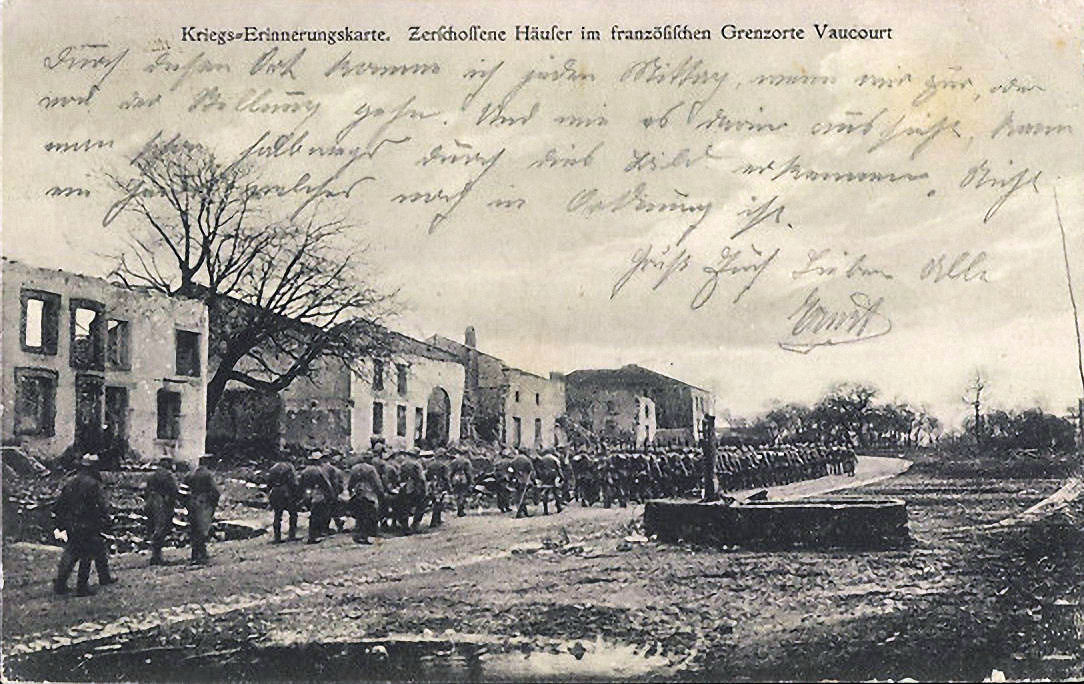 Kriegs=Erinnerungskarte. Zerschossene Häuser im französischen Grenzorte Vaucourt
Durch diesen Ort komme ich jeden Mittag, wenn wir zur, oder
von der Stellung gehn. Und wie es darin aussieht, kann
man halbwegs durch dies Bild erkennen. Nicht
ein Haus welches noch in Ordnung ist.
Grüß Euch Lieben Alle